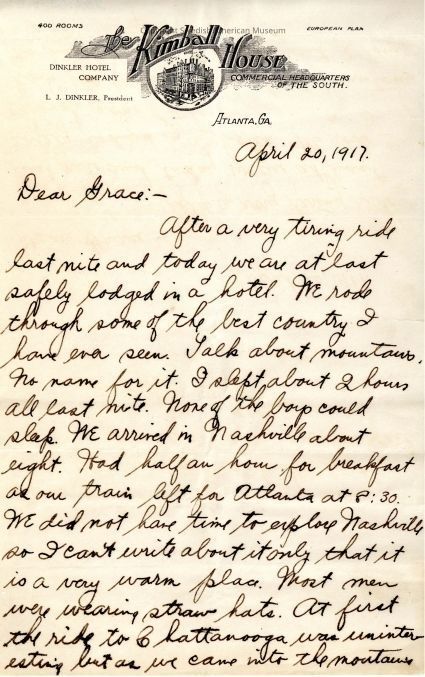 400 ROOMS
EUROPEAN PLAN
The Kimball House
DINKLER HOTEL
COMPANY
L. J. DINKLER, President
COMMERCIAL HEADQUARTERS
OF THE SOUTH.
ATLANTA, GA.
American Museum
April 20, 1917.
Dear Grace:-
After a very tiring ride
last nite and today we are at last
safely lodged in a hotel. We rode
through some of the best country I
have ever seen. Talk about mountains.
No name for it. I slept about 2 hours
all last nite. None of the boys could
sleep. We arrived in Nashville about
eight. Had half an hour for breakfast
as our train left for Atlanta at 8:30.
We did not have time to explore Nashville
so I can't write about it only that it
is a very warm place. Most men
were wearing straw hats. At first
the ride to Chattanooga was uninter-
esting but as we came into the mountains